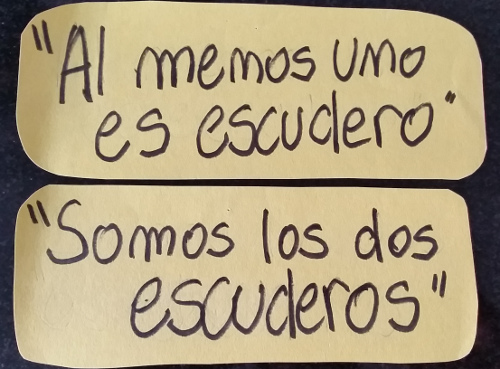 "Al menos uno
es escudero"
"Somos los dos
escuderos"